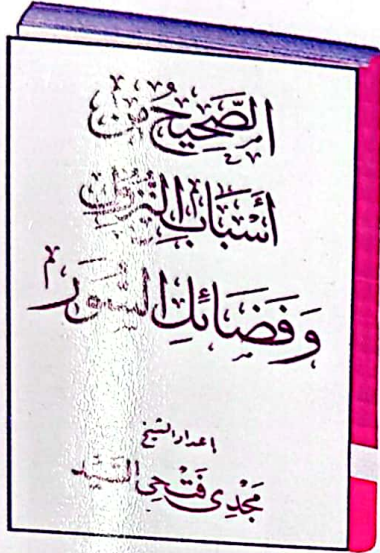 الصَّحِيحُ مِنْ
أَسْبَابِ النُّزُولِ
وَفَضَائِلِ السُّوَرِ
إعداد الشيخ
مَجْدِي فَتْحِي السَّيِّد